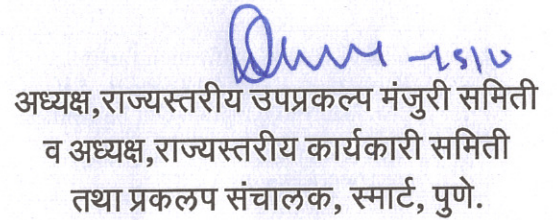 अध्यक्ष,राज्यस्तरीय उपप्रकल्प मंजुरी समिती
व अध्यक्ष,राज्यस्तरीय कार्यकारी समिती
तथा प्रकलप संचालक, स्मार्ट, पुणे.